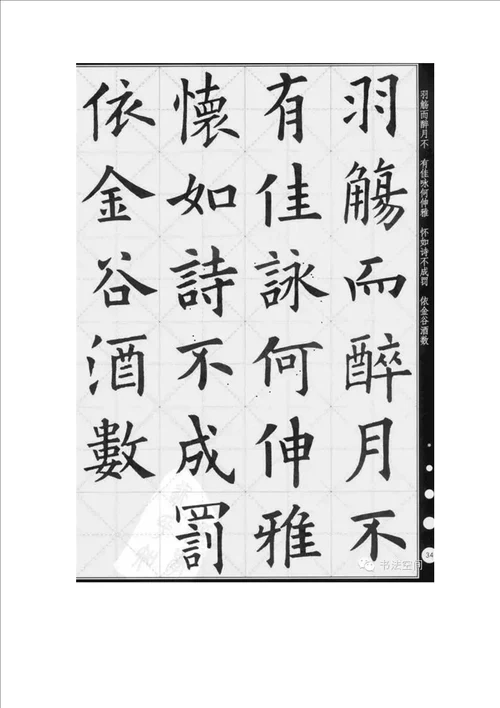 羽觴而醉月不
有佳詠何伸雅
懷如詩不成罰
依金谷酒數
羽觞而醉月不 有佳咏何伸雅 怀如诗不成罚 依金谷酒数
34
书法空间